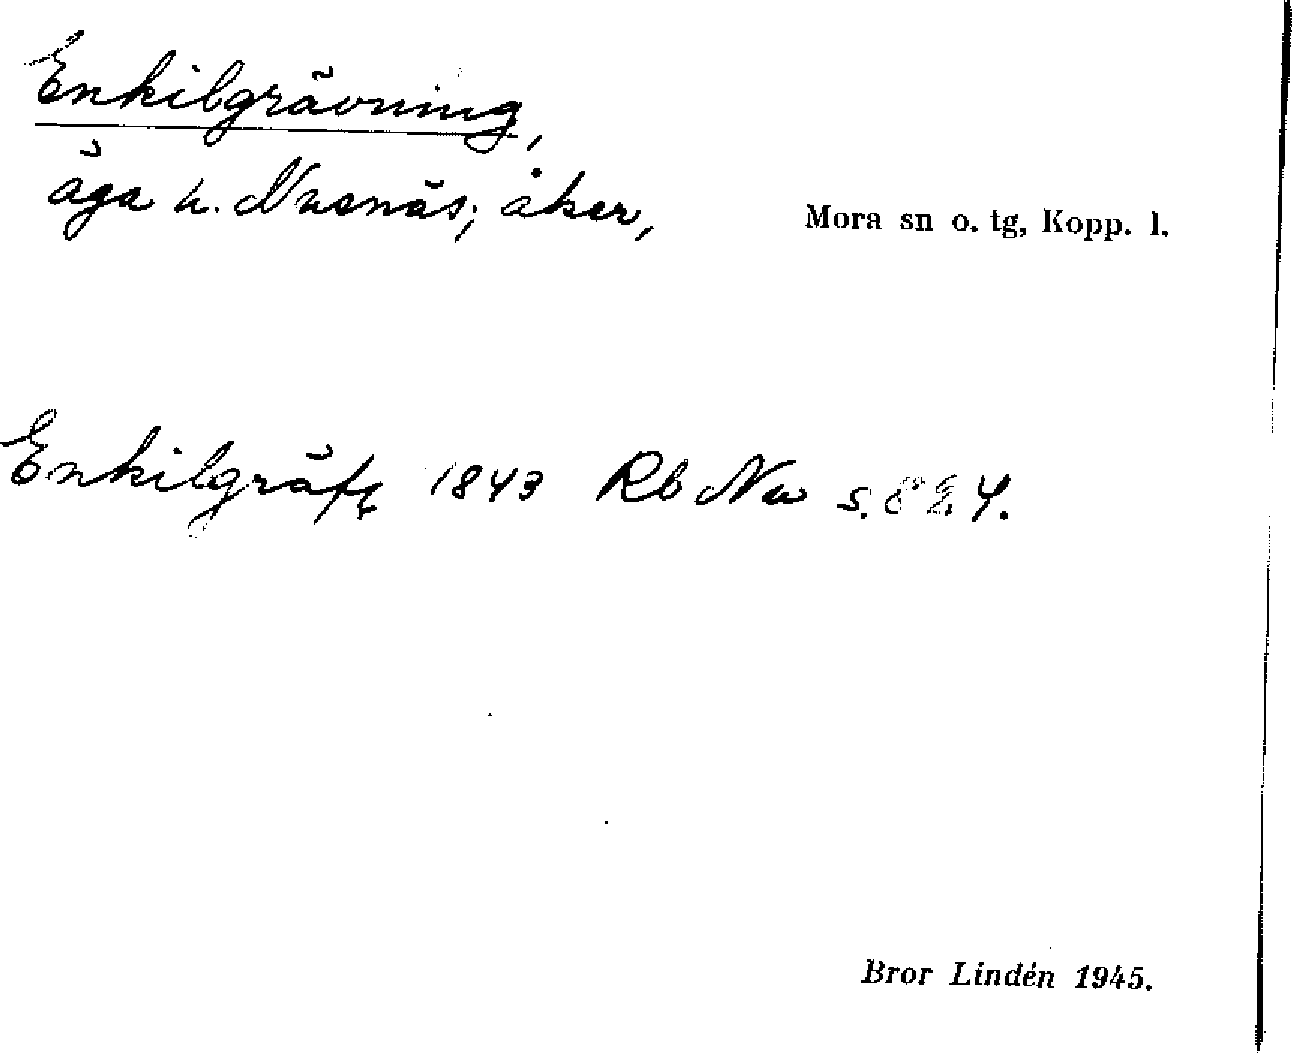 Enkilgrävning,
äga h. Nusnäs; åker,
Mora sn o. tg, Kopp. l.
Enkilgräft 1843 Rb Nu s. 824.
Bror Lindén 1945.